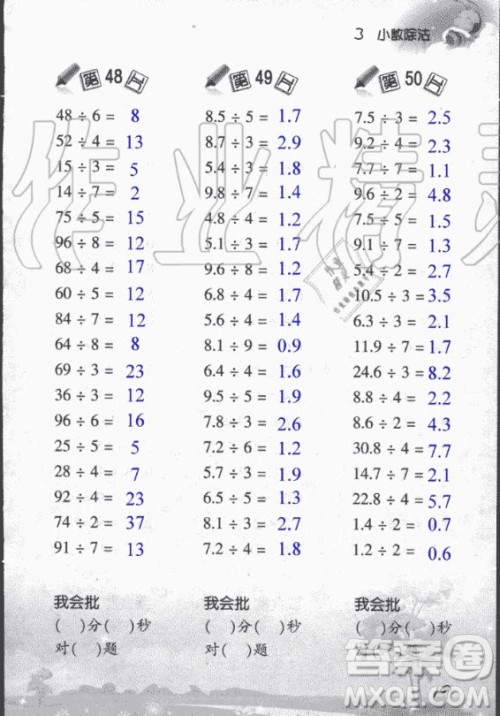 3 小数除法
第 48 页
48 ÷ 6 = 8
52 ÷ 4 = 13
15 ÷ 3 = 5
14 ÷ 7 = 2
75 ÷ 5 = 15
96 ÷ 8 = 12
68 ÷ 4 = 17
60 ÷ 5 = 12
84 ÷ 7 = 12
64 ÷ 8 = 8
69 ÷ 3 = 23
36 ÷ 3 = 12
96 ÷ 6 = 16
25 ÷ 5 = 5
28 ÷ 4 = 7
92 ÷ 4 = 23
74 ÷ 2 = 37
91 ÷ 7 = 13
我会批
( )分( )秒
对( )题
第 49 页
8.5 ÷ 5 = 1.7
8.7 ÷ 3 = 2.9
5.4 ÷ 3 = 1.8
9.8 ÷ 7 = 1.4
4.8 ÷ 4 = 1.2
9.6 ÷ 8 = 1.2
6.8 ÷ 4 = 1.7
5.6 ÷ 4 = 1.4
8.1 ÷ 9 = 0.9
6.4 ÷ 4 = 1.6
9.5 ÷ 5 = 1.9
7.8 ÷ 3 = 2.6
7.2 ÷ 6 = 1.2
7.5 ÷ 5 = 1.5
9.3 ÷ 3 = 3.1
8.1 ÷ 3 = 2.7
7.2 ÷ 4 = 1.8
我会批
( )分( )秒
对( )题
第 50 页
7.5 ÷ 3 = 2.5
9.2 ÷ 4 = 2.3
7.7 ÷ 7 = 1.1
9.6 ÷ 2 = 4.8
7.5 ÷ 5 = 1.5
9.1 ÷ 7 = 1.3
5.4 ÷ 2 = 2.7
10.5 ÷ 3 = 3.5
6.3 ÷ 3 = 2.1
11.9 ÷ 7 = 1.7
24.6 ÷ 3 = 8.2
8.8 ÷ 4 = 2.2
8.6 ÷ 2 = 4.3
30.8 ÷ 4 = 7.7
14.7 ÷ 7 = 2.1
22.8 ÷ 4 = 5.7
1.4 ÷ 2 = 0.7
1.2 ÷ 2 = 0.6
我会批
( )分( )秒
对( )题
作业精灵
答案圈
MXQE.COM